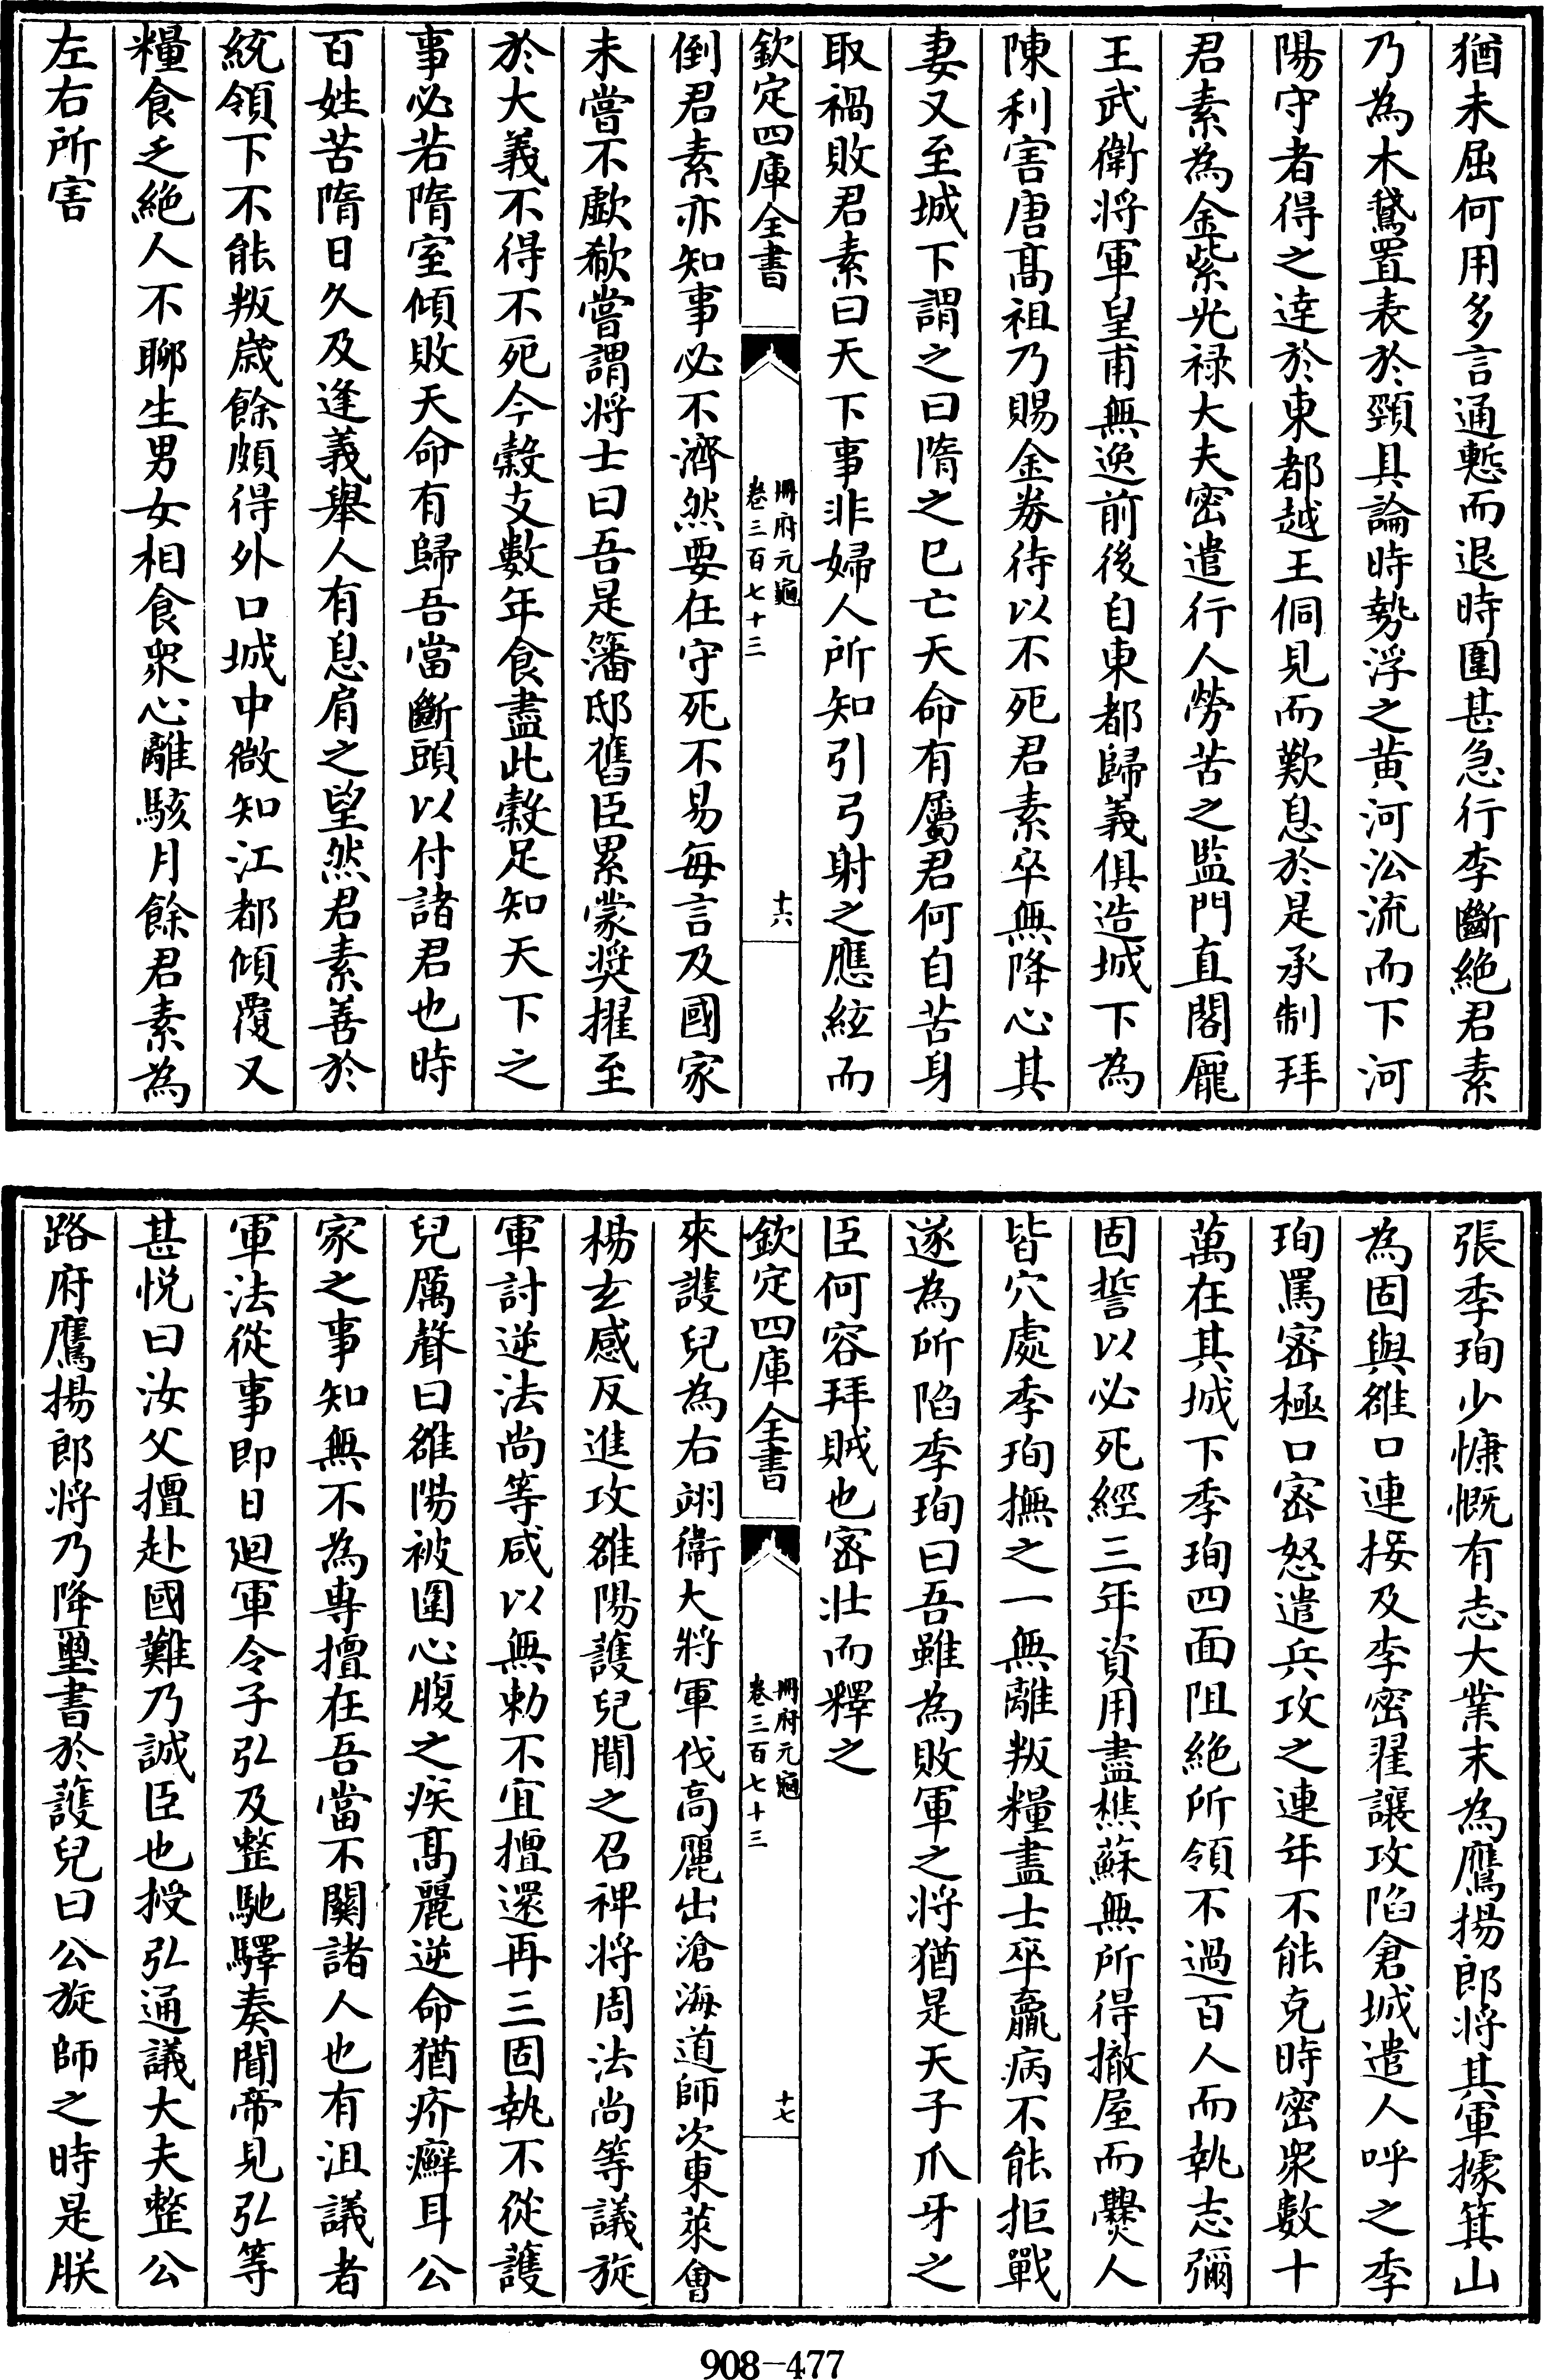 猶未屈何用多言通慙而退時圍甚急行李斷絶君素
乃為木鵞置表於頸具論時勢浮之黄河沿流而下河
陽守者得之達於東都越王侗見而歎息於是承制拜
君素為金紫光禄大夫密遣行人勞苦之監門直閣龐
王武衛將軍皇甫無逸前後自東都歸義俱造城下為
陳利害唐髙祖乃賜金券待以不死君素卒無降心其
妻又至城下謂之曰隋之已亡天命有屬君何自苦身
取禍敗君素曰天下事非婦人所知引弓射之應絃而
欽定四庫全書
冊府元龜
卷三百七十三
十六
倒君素亦知事必不濟然要在守死不易每言及國家
未嘗不歔欷嘗謂將士曰吾是籓邸舊臣累蒙奨擢至
於大義不得不死今穀支數年食盡此穀足知天下之
事必若隋室傾敗天命有歸吾當斷頭以付諸君也時
百姓苦隋日久及逢義舉人有息肩之望然君素善於
統領下不能叛歳餘頗得外口城中微知江都傾覆又
糧食乏絶人不聊生男女相食衆心離駭月餘君素為
左右所害
張季珣少慷慨有志大業末為鷹揚郎將其軍據箕山
為固與雒口連接及李密翟讓攻陷倉城遣人呼之季
珣罵密極口密怒遣兵攻之連年不能克時密衆數十
萬在其城下季珣四面阻絶所領不過百人而執志彌
固誓以必死經三年資用盡樵蘇無所得撤屋而爨人
皆穴處季珣撫之一無離叛糧盡士卒羸病不能拒戰
遂為所陷季珣曰吾雖為敗軍之將猶是天子爪牙之
臣何容拜賊也密壯而釋之
欽定四庫全書
冊府元龜
卷三百七十三
十七
來護兒為右翊衛大將軍伐高麗出滄海道師次東萊會
楊玄感反進攻雒陽護兒聞之召裨將周法尚等議旋
軍討逆法尚等咸以無勅不宜擅還再三固執不從護
兒厲聲曰雒陽被圍心腹之疾髙麗逆命猶疥癬耳公
家之事知無不為專擅在吾當不闗諸人也有沮議者
軍法從事即日廻軍令子弘及整馳驛奏聞帝見弘等
甚悦曰汝父擅赴國難乃誠臣也授弘通議大夫整公
路府鷹揚郎將乃降璽書於護兒曰公旋師之時是朕
908-477